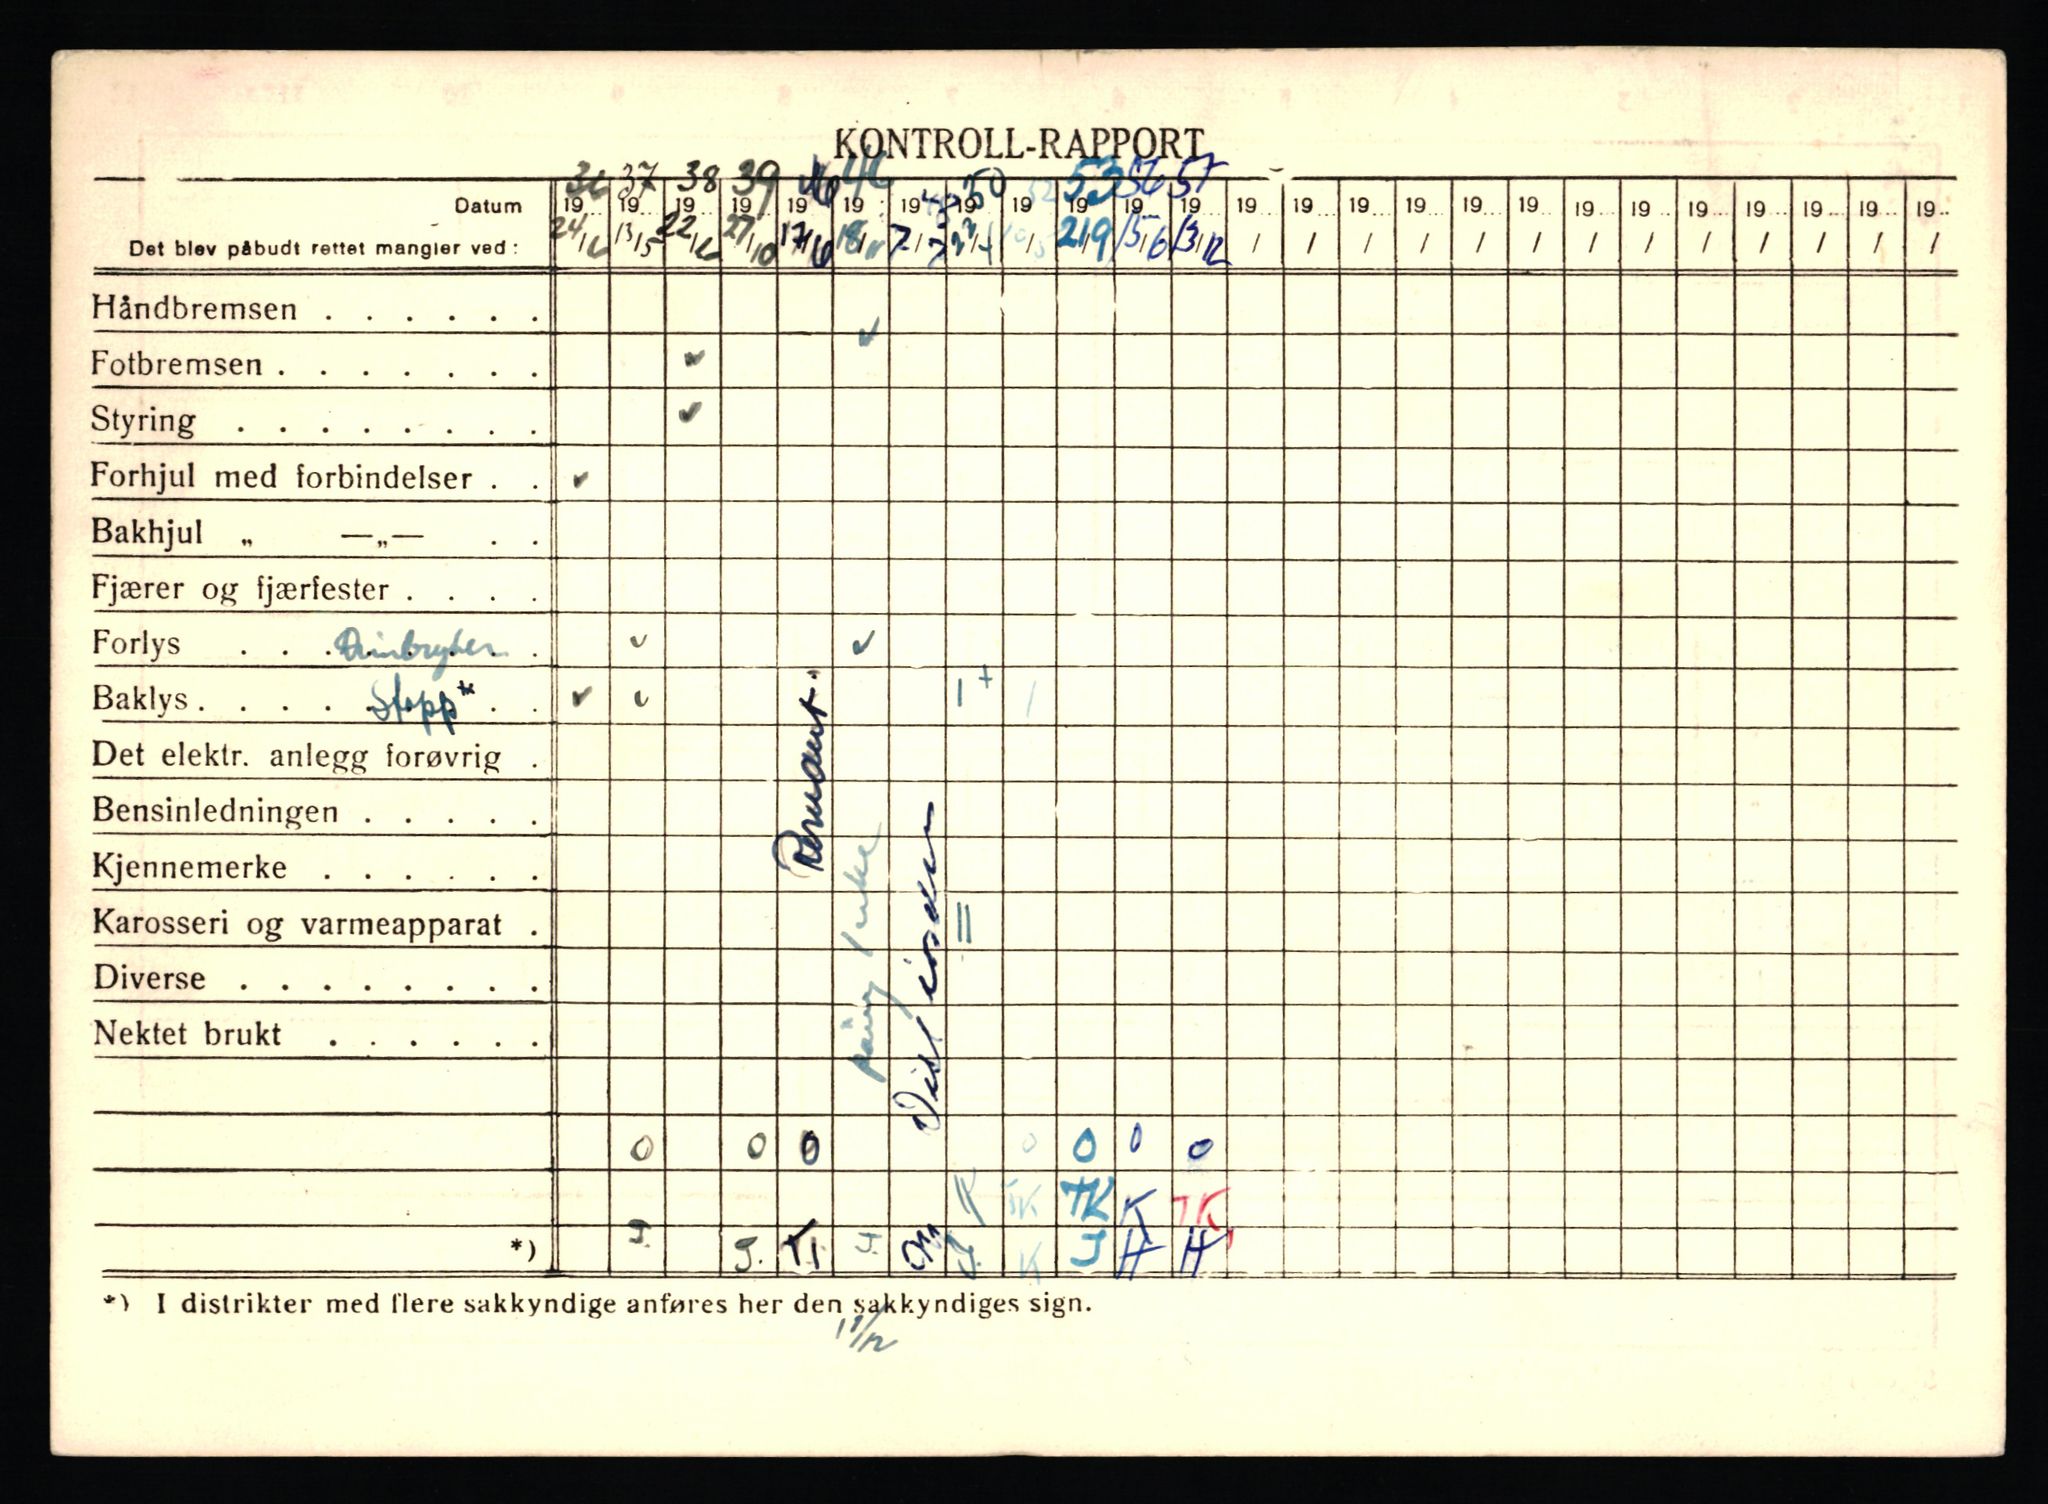 KONTROLL-RAPPORT
36 37 38 39 46 46 48 50 52 53 56 57
Datum 19 19 19 19 19 19 19 19 19 19 19 19 19 19 19 19 19 19 19 19 19 19 19 19 19
Det blev påbudt rettet mangler ved: 24/6 13/5 22/6 27/10 17/6 18/11 7/7 23/4 10/5 21/9 15/6 13/12 / / / / / / / / / / / / /
Håndbremsen . . . . . .
Fotbremsen . . . . . . . ✓ ✓
Styring . . . . . . . . ✓
Forhjul med forbindelser . . ✓
Bakhjul „ —„— . .
Fjærer og fjærfester . . . .
Forlys . . . . . . ✓ ✓
Baklys . . . . Stopp* . . ✓ ✓ 1 + 1
Det elektr. anlegg forøvrig .
Bensinledningen . . . . .
Kjennemerke . . . . . .
Karosseri og varmeapparat . 11
Diverse . . . . . . . .
Nektet brukt . . . . . .
Permanent.
0 0 0 0 0 0 0
TK K TK
*) J. J. J. K J H H
*) I distrikter med flere sakkyndige anføres her den sakkyndiges sign.